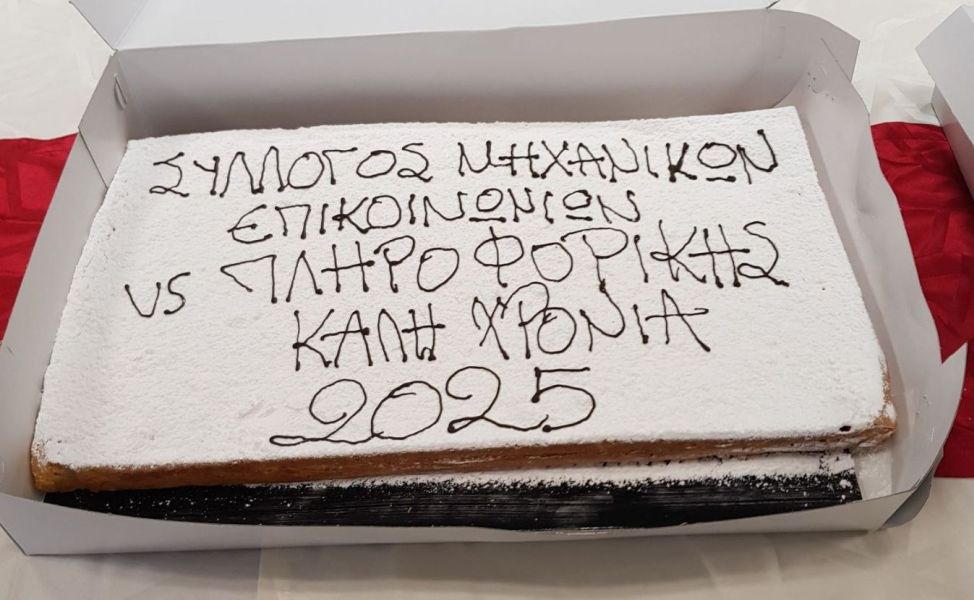 ΣΥΛΛΟΓΟΣ ΜΗΧΑΝΙΚΩΝ
ΕΠΙΚΟΙΝΩΝΙΩΝ
VS ΠΛΗΡΟΦΟΡΙΚΗΣ
ΚΑΛΗ ΧΡΟΝΙΑ
2025